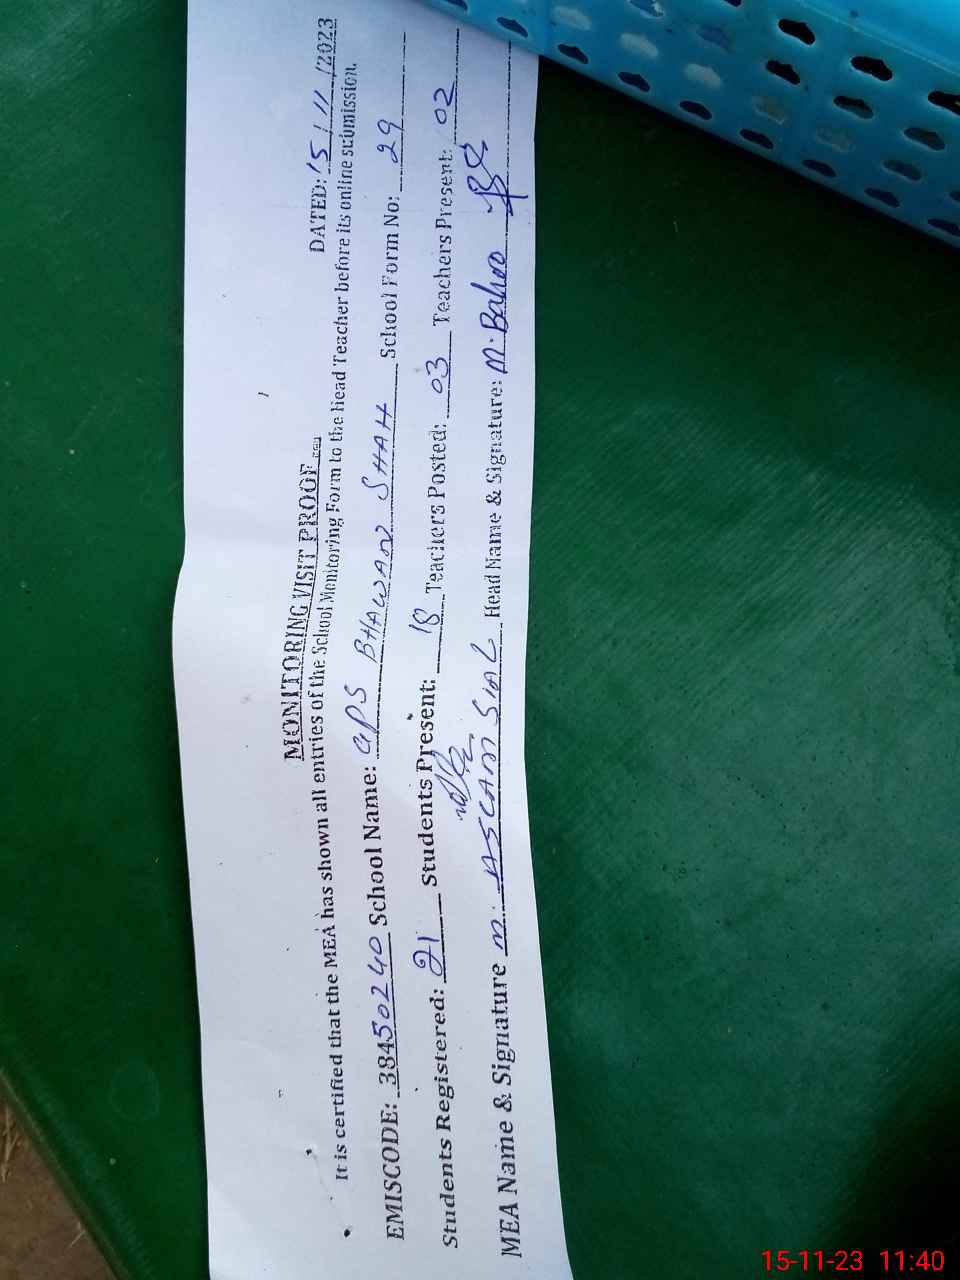 MONITORING VISIT PROOF
DATED: 15/11/2023
It is certified that the MEA has shown all entries of the School Monitoring Form to the Head Teacher before its online submission.
EMISCODE: 38450240 School Name: GPS BHAWAN SHAH School Form No: 29
Students Registered: 21 Students Present: 18 Teachers Posted: 03 Teachers Present: 02
MEA Name & Signature M. ASLAM SIAL Head Name & Signature: M. Bahoo
15-11-23 11:40